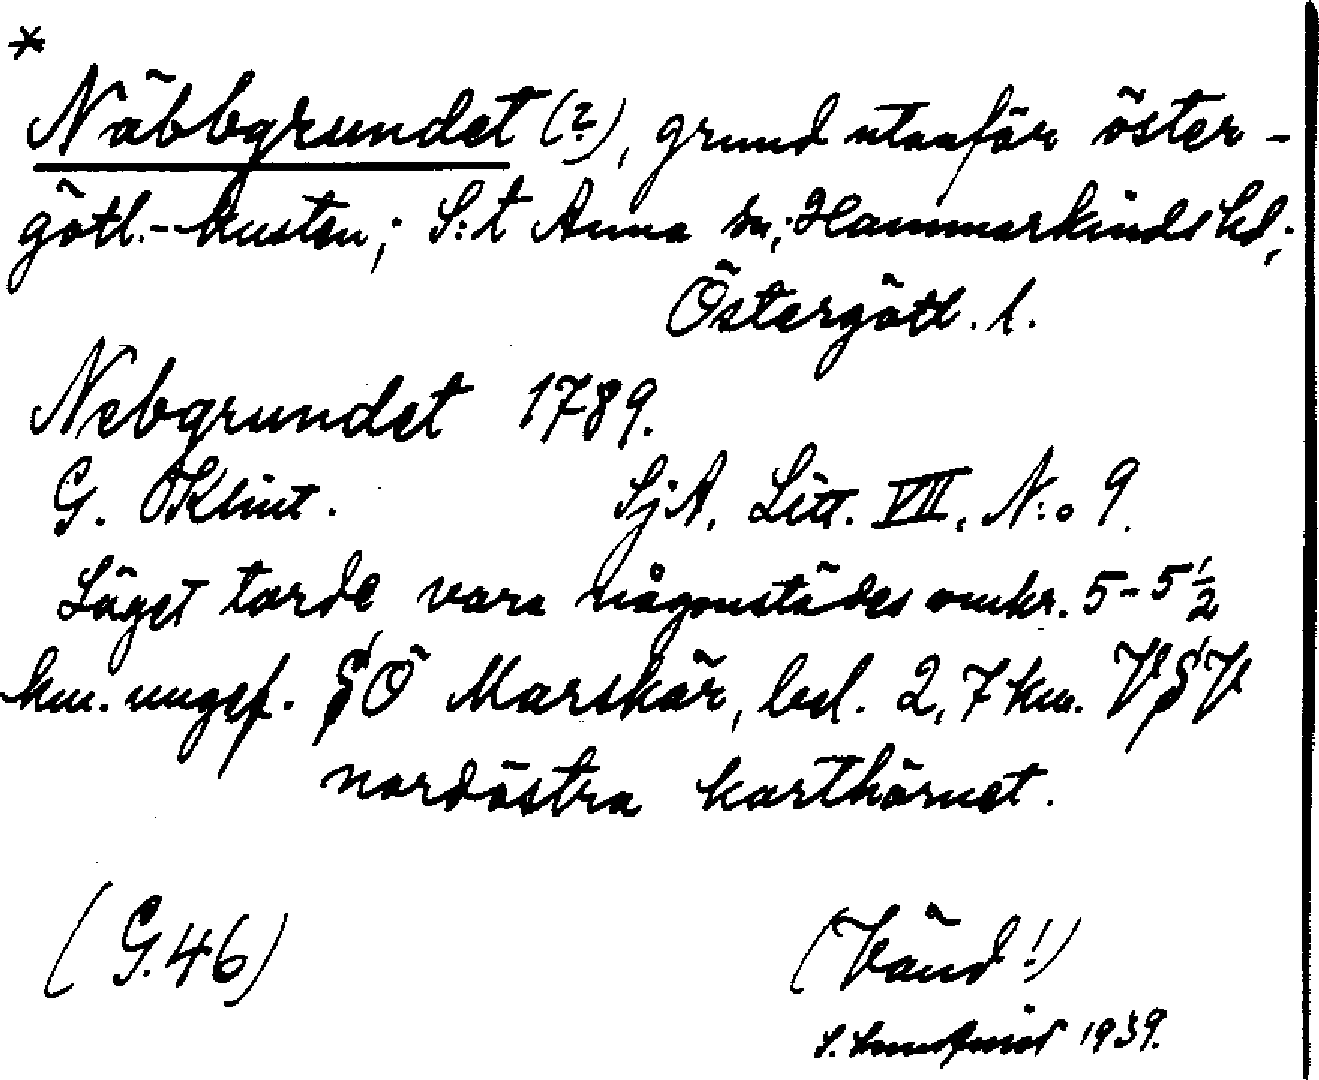 *
Näbbgrundet (?), grund utanför öster-
götl.-kusten; S:t Anna sn; Hammarkinds hd;
Östergötl. l.
Nebgrundet 1789.
G. Klint. SjA, Litt. VII, N:o 9.
Läget torde vara någonstädes omkr. 5-5½
km. ungef. SÖ Marskär, bel. 2,7 km. VSV
nordöstra karthörnet.
(G.46) (Vänd!)
S. 1939.